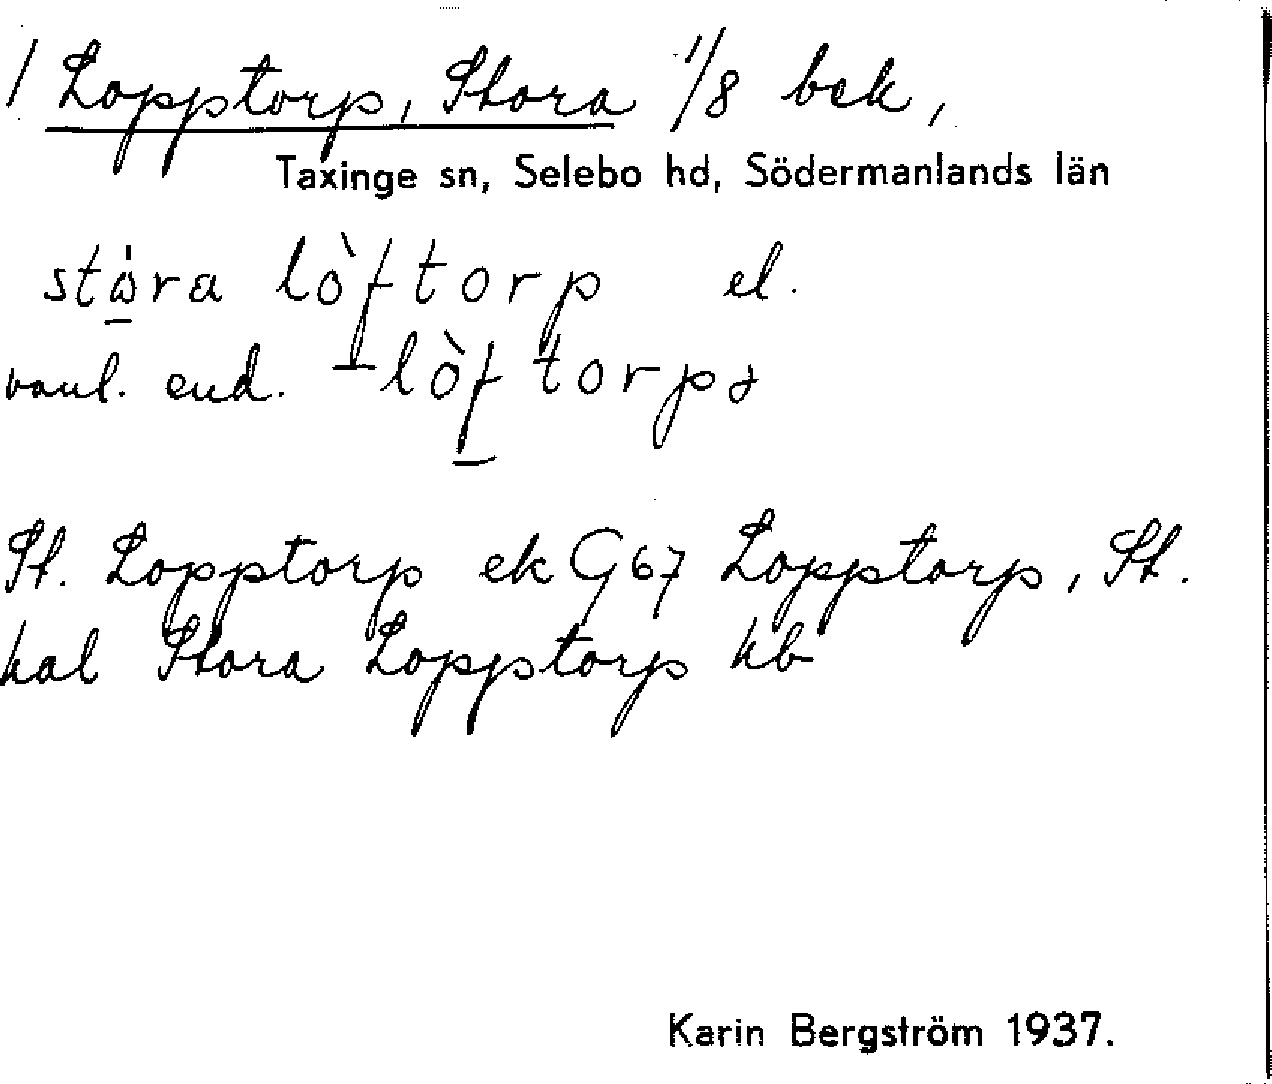 1 Lopptorp, Stora 1/8 bek,
Taxinge sn, Selebo hd, Södermanlands län
stóra lòftorp el.
vanl. end. -lòftorpə
St. Lopptorp ek G67 Lopptorp, St.
hal Stora Lopptorp kb
Karin Bergström 1937.